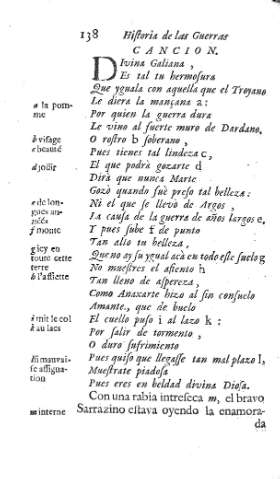 138 Historia de las Guerras
CANCION.
DIvina Galiana,
Es tal tu hermosura
Que yguala con aquella que el Troyano
Le diera la mançana a:
Por quien la guerra dura
Le vino al fuerte muro de Dardano.
O rostro b soberano,
Pues tienes tal lindeza c,
El que podrà gozarte d
Dirà que nunca Marte
Gozò quando fuè preso tal belleza:
Ni el que se llevò de Argos,
La causa de la guerra de años largos e,
Y pues sube f de punto
Tan alto tu belleza,
Que no ay su ygual acà en todo este suelo g
No muestres el asiento h
Tan lleno de aspereza,
Como Anaxarte hizo al sin consuelo
Amante, que de buelo
El cuello puso i al lazo k:
Por salir de tormento,
O duro sufrimiento
Pues quiso que llegasse tan mal plazo l,
Muestrate piadosa
Pues eres en beldad divina Diosa.
Con una rabia intreseca m, el bravo
Sarrazino estava oyendo la enamora-
da
a la pom-
me
b visage
c beauté
d joüir
e de lon-
gues an-
nées
f monte
g icy en
toute cette
terre
h l'assiette
i mit le col
k au lacs
l si mauvai-
se assigna-
tion
m interne